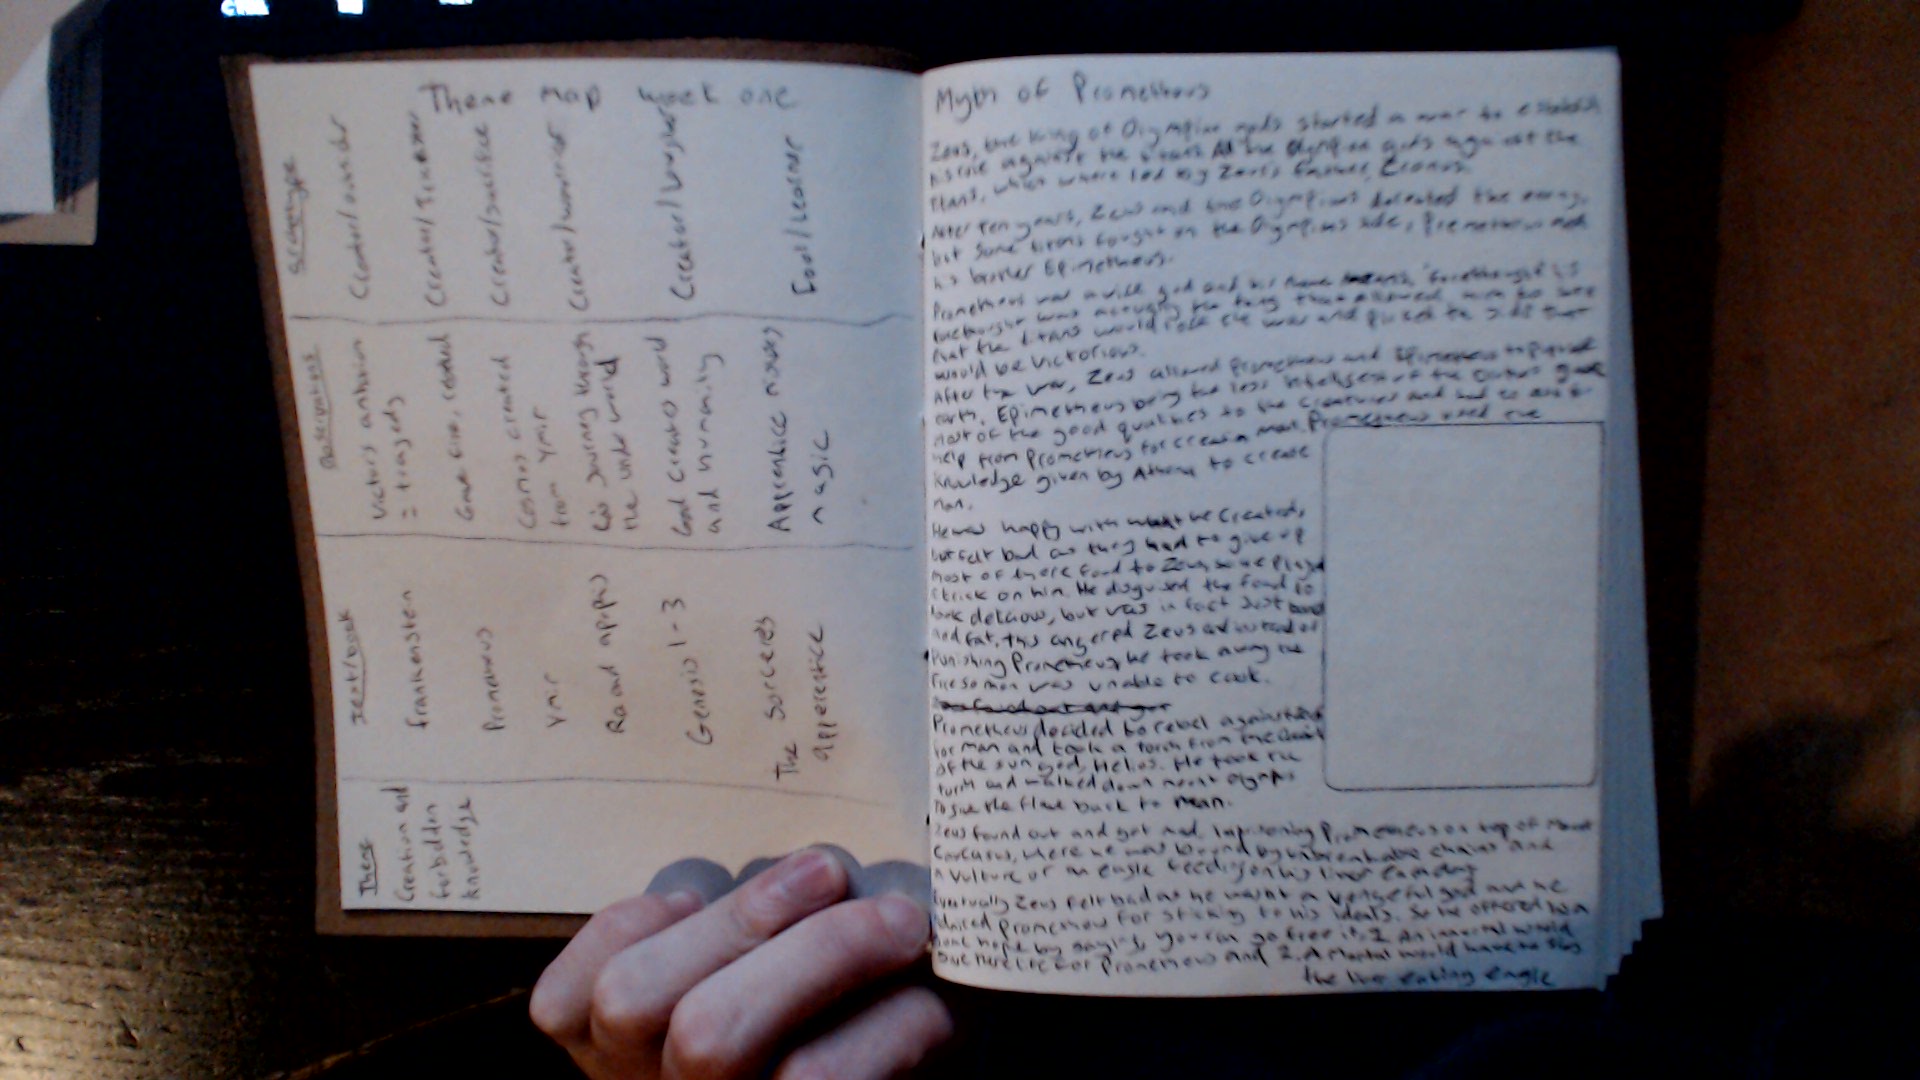 Theme Map Week one
Theme
Text/book
Description
Creation and
forbidden
knowledge
Frankenstein
Victors
= tragedy
Creator/
Gave fire,
Creator/
Ymir
Cosmos created
from Ymir
Creator/sacrifice
Ra and
Ra's journey through
the underworld
Creator/warrior
Genesis 1-3
God creates world
and humanity
Creator/
The Sorcerer's
apprentice
Apprentice
magic
Fool/Learner
Myth of Prometheus
Zeus, the King of Olympian gods started a war to establish
his rule against the titans All the Olympian gods against the
titans, which where led by Zeus's father, Cronus.
After ten years, Zeus and the Olympians defeated the enemy,
but some titans fought on the Olympians side, Prometheus and
his brother Epimetheus.
Prometheus was a wise god and his name means 'forethought'
forethought was actually the thing that allowed him to see
that the titans would lose the war and picked the side that
would be victorious.
After the war, Zeus allowed Prometheus and Epimetheus to
earth. Epimetheus being the less intelligent of the gave
most of the good qualities to the creatures and had to
help from Prometheus for man. Prometheus used the
knowledge given by Athena to create
man.
He was happy with what he created,
but felt bad as they had to give up
most of there food to Zeus, so he played
a trick on him. He disgused the food to
look delciow, but was in fact just bone
and fat, this angered Zeus and instead of
punishing Prometheus, he took away the
fire so man was unable to cook.
Prometheus decided to rebel against
for man and took a torch from the
of the sun god, Helios. He took the
torch and walked down mount
To give the flame back to man.
Zeus found out and got mad. Imprisoning Prometheus on top of Mount
Caucasus, where he was bound by unbreakable chains and
a vulture or an eagle feeding on his liver
Eventually Zeus felt bad as he wasn't a vengeful god and he
for sticking to his ideals. So he offered him
some hope by saying, you can go free if, 1 An immortal would
and 2. A Mortal would have to slay
the liver eating eagle